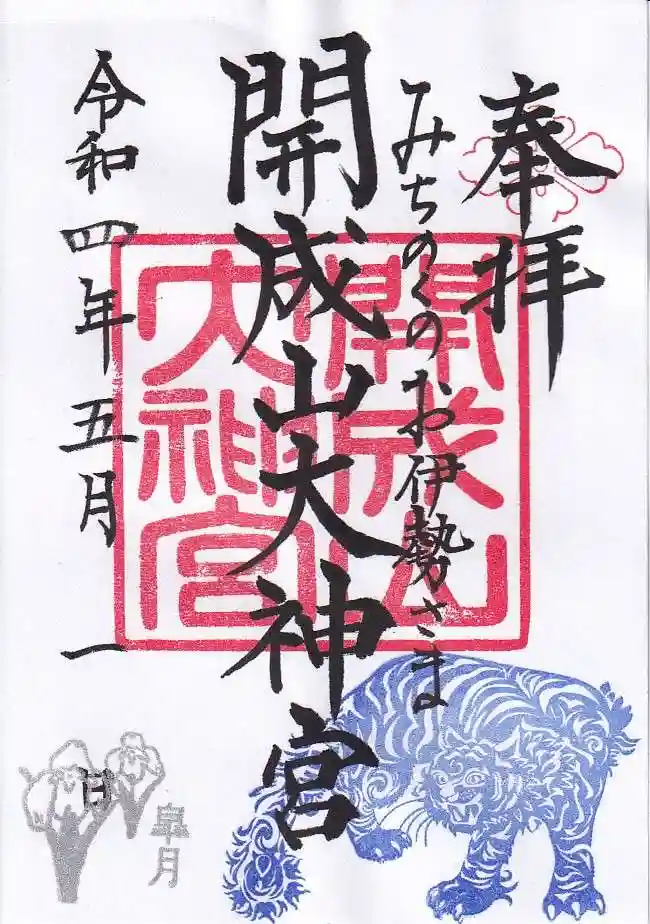 奉拝
みちのくのお伊勢さま
開成山大神宮
開成山
大神宮
令和四年五月一日
皐月